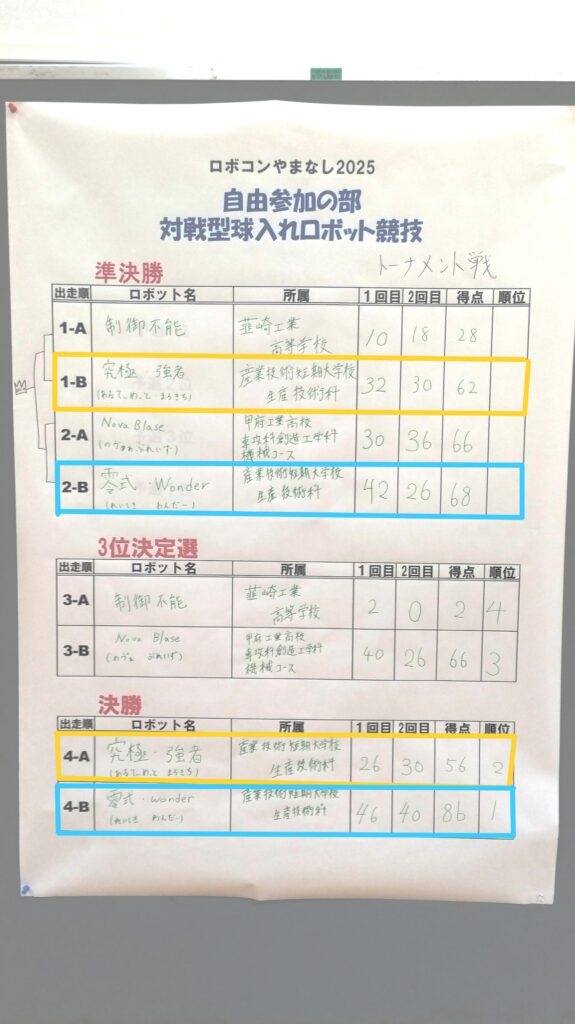 ロボコンやまなし2025
自由参加の部
対戦型球入れロボット競技
トーナメント戦
準決勝
出走順 ロボット名 所属 1回目 2回目 得点 順位
1-A 制御不能 韮崎工業 10 18 28
高等学校
1-B 究極 強者 産業技術短期大学校 32 30 62
生産技術科
2-A Nova Blase 甲府工業高校 30 36 66
専攻科創造工学科
機械コース
2-B 零式・Wonder 産業技術短期大学校 42 26 68
(れいしき わんだー) 生産技術科
3位決定選
出走順 ロボット名 所属 1回目 2回目 得点 順位
3-A 制御不能 韮崎工業 2 0 2 4
高等学校
3-B Nova Blase 甲府工業高校 40 26 66 3
専攻科創造工学科
機械コース
決勝
出走順 ロボット名 所属 1回目 2回目 得点 順位
4-A 究極・強者 産業技術短期大学校 26 30 56 2
生産技術科
4-B 零式・wonder 産業技術短期大学校 46 40 86 1
(れいしき わんだー) 生産技術科